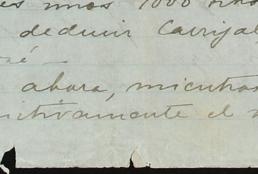 es unos 1000
deducir Carrizal
sé —
ahora, mientras
itivamente el